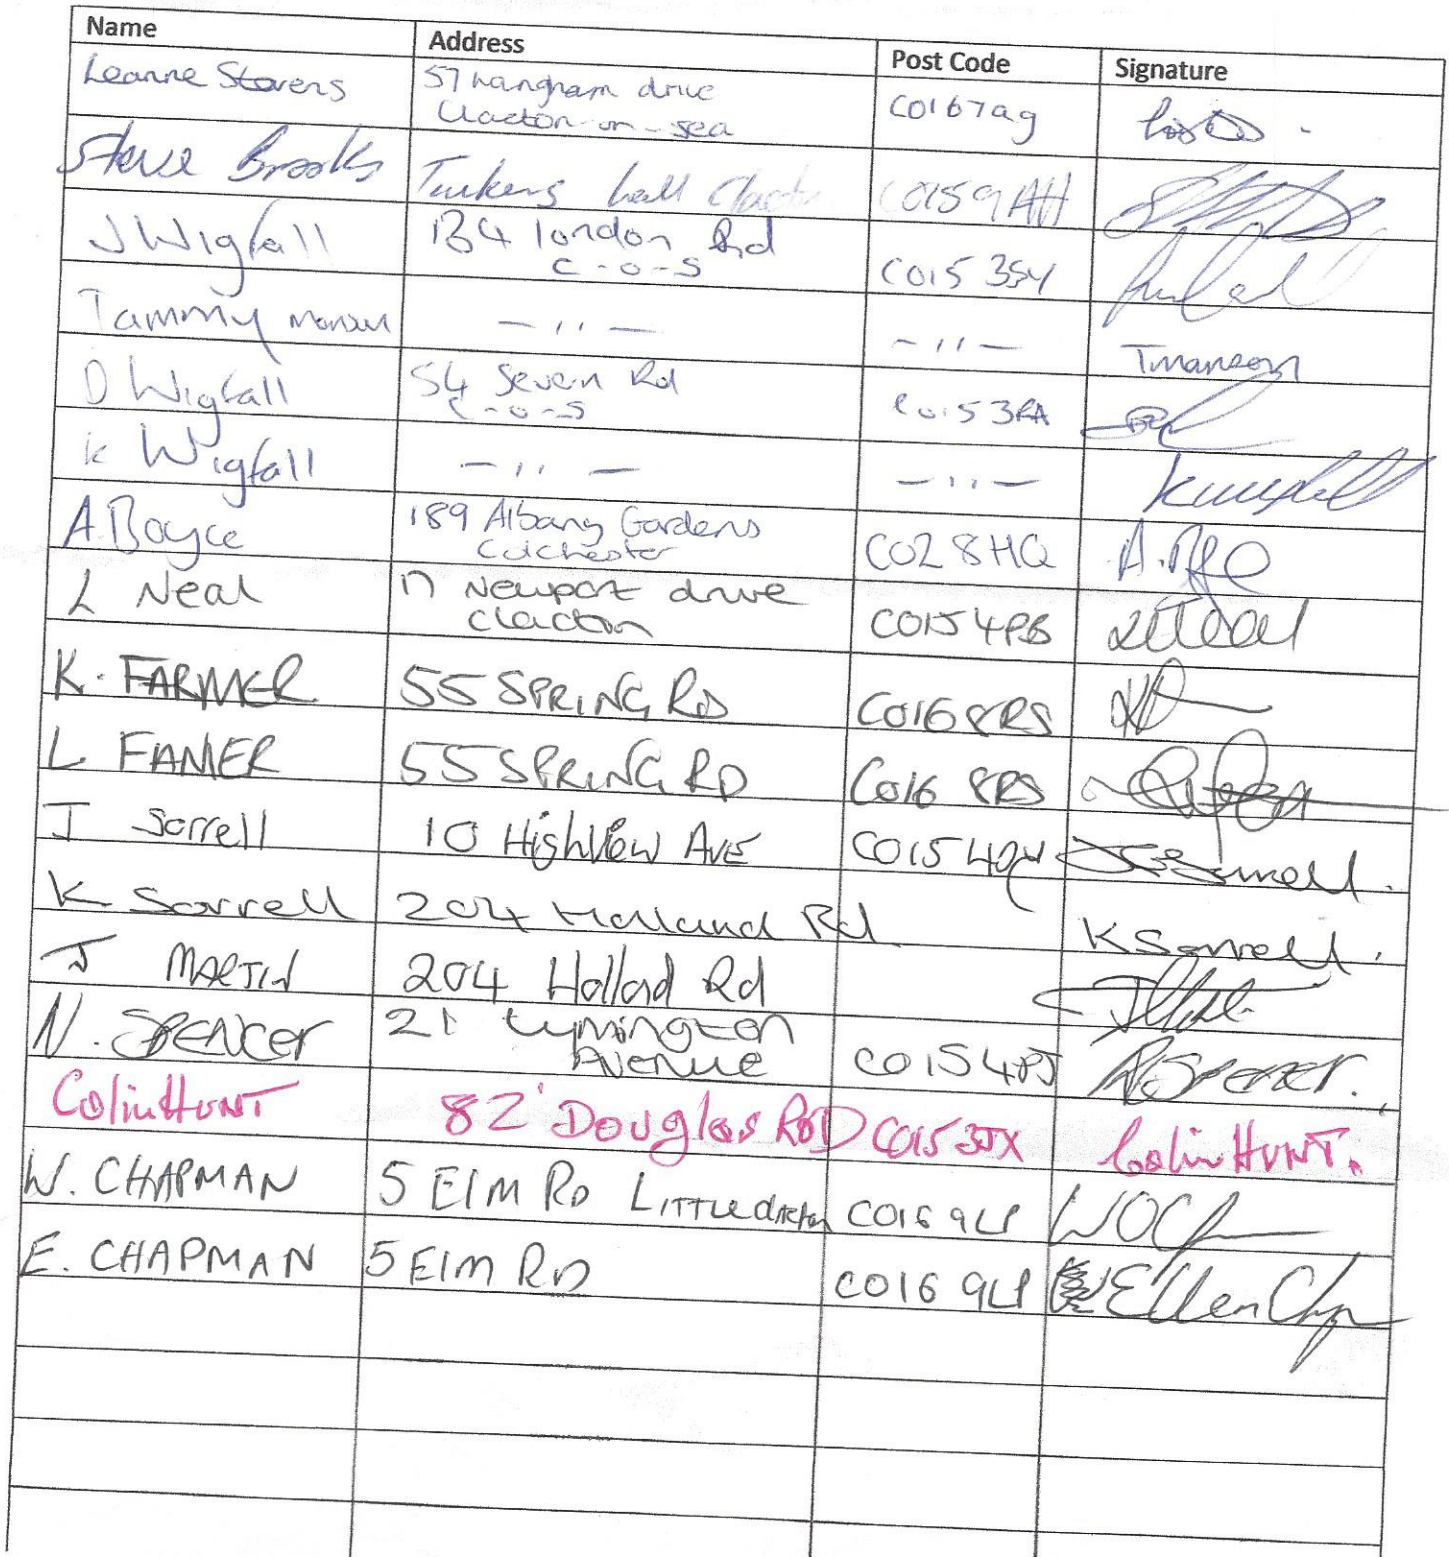 Name Address Post Code Signature
Leanne Stevens 57 Langham drive CO16 7ag
Clacton-on-sea
Steve Brooks Tuckers hall Clacton CO15 9AH
J Wigfall 134 london Rd CO15 3SY
C-O-S
Tammy Manson -11- -11- Tmanson
D Wigfall 54 Seven Rd CO15 3RA
C-O-S
K Wigfall -11- -11-
A. Boyce 189 Albany Gardens CO2 8HQ
Colchester
L Neal 17 Newport drive CO15 4PB
Clacton
K. FARMER 55 SPRING RD CO16 8RS
L FAMER 55 SPRING RD CO16 8RS
J Sorrell 10 Highview AVE CO15 4QY
K Sorrell 204 Holland Rd K Sorrell.
J MARTIN 204 Hollad Rd
N. SPENCER 21 Lymington CO15 4PJ N Spencer.
AVENUE
Colin HUNT 82 Douglas RoD CO15 3JX Colin HUNT.
W. CHAPMAN 5 ElM RD LITTLE clacton CO16 9LP
E. CHAPMAN 5 ElM RD CO16 9LP Ellen